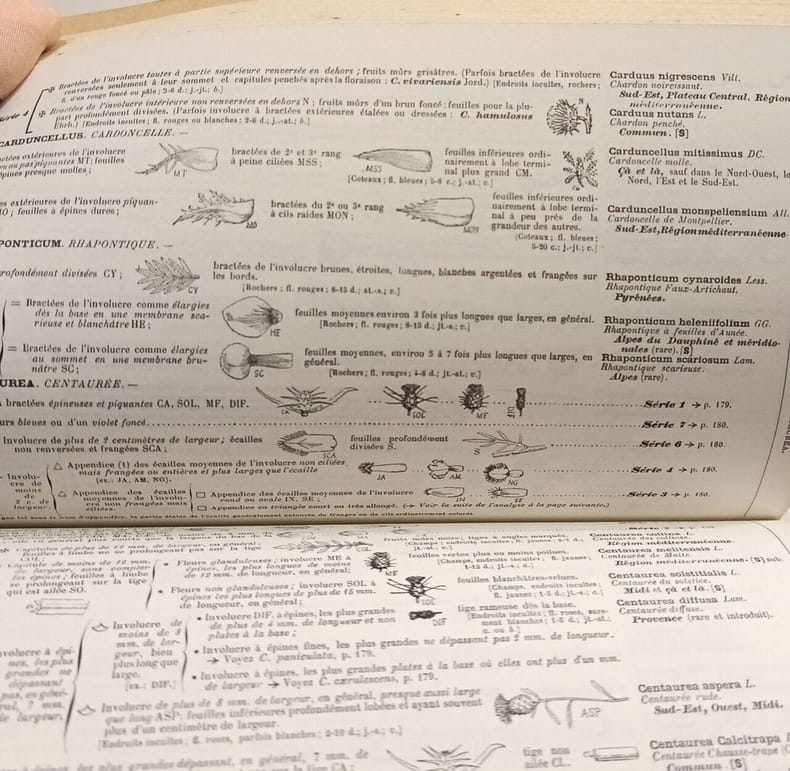 Bractées de l'involucre toutes à partie supérieure renversée en dehors ; fruits mûrs grisâtres. (Parfois bractées de l'involucre
renversées seulement à leur sommet et capitules penchés après la floraison : C. vivariensis Jord.) [Endroits incultes, rochers ;
fl. d'un rouge foncé ou pâle ; 2-6 d.; j.; b.]
Carduus nigrescens Vill.
Chardon noircissant.
Sud-Est, Plateau Central, Région
méditerranéenne.
Série 4
Bractées de l'involucre intérieure non renversées en dehors N ; fruits mûrs d'un brun foncé ; feuilles pour la plu-
part profondément divisées. (Parfois involucre à bractées extérieures étalées ou dressées : C. hamulosus
Ehrh.) [Endroits incultes ; fl. rouges ou blanches ; 2-6 d.; j.-at.; b.]
N
Carduus nutans L.
Chardon penché.
Commun. [S]
CARDUNCELLUS. CARDONCELLE. —
extérieures de l'involucre
ou peu piquantes MT; feuilles
épines presque molles ;
MT
bractées de 2e et 3e rang
à peine ciliées MSS ;
MSS
feuilles inférieures ordi-
nairement à lobe termi-
nal plus grand CM.
[Coteaux ; fl. bleues ; 5-8 c.; j.-at.; v.]
Carduncellus mitissimus DC.
Cardoncelle molle.
Çà et là, sauf dans le Nord-Ouest, le
Nord, l'Est et le Sud-Est.
es extérieures de l'involucre piquan-
MO ; feuilles à épines dures ;
MO
bractées du 2e ou 3e rang
à cils raides MON ;
MON
feuilles inférieures ordi-
nairement à lobe termi-
nal à peu près de la
grandeur des autres.
[Coteaux ; fl. bleues ;
5-20 c.; j.-jt.; v.]
Carduncellus monspeliensium All.
Cardoncelle de Montpellier.
Sud-Est, Région méditerranéenne
PONTICUM. RHAPONTIQUE. —
rofondément divisées CY ;
CY
bractées de l'involucre brunes, étroites, longues, blanches argentées et frangées sur
les bords.
[Rochers ; fl. rouges ; 8-15 d.; at.-s.; v.]
Rhaponticum cynaroides Less.
Rhapontique Faux-Artichaut.
Pyrénées.
= Bractées de l'involucre comme élargies
dès la base en une membrane sca-
rieuse et blanchâtre HE ;
HE
feuilles moyennes environ 3 fois plus longues que larges, en général.
[Rochers ; fl. rouges ; 8-15 d.; jt.-s.; v.]
Rhaponticum heleniifolium GG.
Rhapontique à feuilles d'Aunée.
Alpes du Dauphiné et méridio-
nales (rare). [S]
= Bractées de l'involucre comme élargies
au sommet en une membrane bru-
nâtre SC ;
SC
feuilles moyennes, environ 5 à 7 fois plus longues que larges, en
général.
[Rochers ; fl. rouges ; 4-8 d.; jt.-at.; v.]
Rhaponticum scariosum Lam.
Rhapontique scarieuse.
Alpes (rare).
UREA. CENTAURÉE. —
bractées épineuses et piquantes CA, SOL, MF, DIF.
CA
SOL
MF
DIF
Série 1 → p. 179.
urs bleues ou d'un violet foncé
Série 7 → p. 180.
Involucre de plus de 2 centimètres de largeur ; écailles
non renversées et frangées SCA ;
SCA
feuilles profondément
divisées S.
S
Série 6 → p. 180.
Involu-
cre de
moins
de
2 c. de
largeur.
△ Appendice (1) des écailles moyennes de l'involucre non ciliées
mais frangées ou entières et plus larges que l'écaille
[ex.: JA, AM, NG].
JA
AM
NG
Série 4 → p. 180.
△ Appendice des écailles
moyennes de l'involu-
cre non frangées mais
ciliées.
□ Appendice des écailles moyennes de l'involucre
rond ou ovale IN, SE ;
IN
SE
Série 3 → p. 180.
□ Appendice en triangle court ou très allongé. (→ Voir la suite de l'analyse à la page suivante.)
Capitules de plus de 12 mm. de largeur,
feuilles à limbe ne se prolongeant pas sur la tige
COL ;
COL
fruits mûrs noirs ; tiges à angles marqués.
Centaurea collina L.
Centaurée des collines.
Région méditerranéenne.
Capitules de moins de 12 mm.
de largeur, sans compter
les épines ; feuilles à limbe
se prolongeant sur la tige
qui est ailée SO.
Fleurs glanduleuses ; involucre ME à
épines, les plus longues de moins
de 12 mm. de longueur, en général ;
ME
feuilles vertes plus ou moins poilues.
[Champs, endroits incultes ;
fl. jaunes ;
Centaurea melitensis L.
Centaurée de Malte.
Région méditerranéenne. [S] sub.
* Fleurs non glanduleuses ; involucre SOL à
épines les plus longues de plus de 15 mm.
de longueur, en général ;
SOL
feuilles blanchâtres-velues.
[Champs, endroits incultes ;
fl. jaunes ; 1-5 d.; jt.-s.; a.]
Centaurea solstitialis L.
Centaurée du solstice.
Midi et çà et là. [S]
nvolucre à épi-
nes, les plus
grandes ne
dépassant
pas, en géné-
ral, 7 mm.
de largeur.
Involucre de
moins de 8
mm. de lar-
geur, bien
plus long que
large.
[ex.: DIF.]
• Involucre DIF, à épines, les plus grandes
de plus de 4 mm. de longueur et non
plates à la base ;
DIF
tige rameuse dès la base.
[Endroits incultes ; fl. roses, rare-
ment blanches ; 1-5 d.; jt.-at.;
a. ou b.]
Centaurea diffusa Lam.
Centaurée diffuse.
Provence (rare et introduit).
• Involucre à épines fines, les plus grandes ne dépassant pas 2 mm. de longueur.
→ Voyez C. paniculata, p. 179.
• Involucre à épines, les plus grandes plates à la base où elles ont plus d'un mm.
de largeur → Voyez C. cærulescens, p. 179.
Involucre de plus de 8 mm. de largeur, en général, presque aussi large
que long ASP ; feuilles inférieures profondément lobées et ayant souvent
plus d'un centimètre de largeur.
[Endroits incultes ; fl. roses, parfois blanches ; 2-10 d.; j.-s.; v.]
ASP
Centaurea aspera L.
Centaurée rude.
Sud-Est, Ouest, Midi.
épines, les plus grandes dépassant, en général, 7 mm. de
CA ;
tige non
ailée CL.
CL
Centaurea Calcitrapa
Centaurée Chausse-trape
Commun. [S]